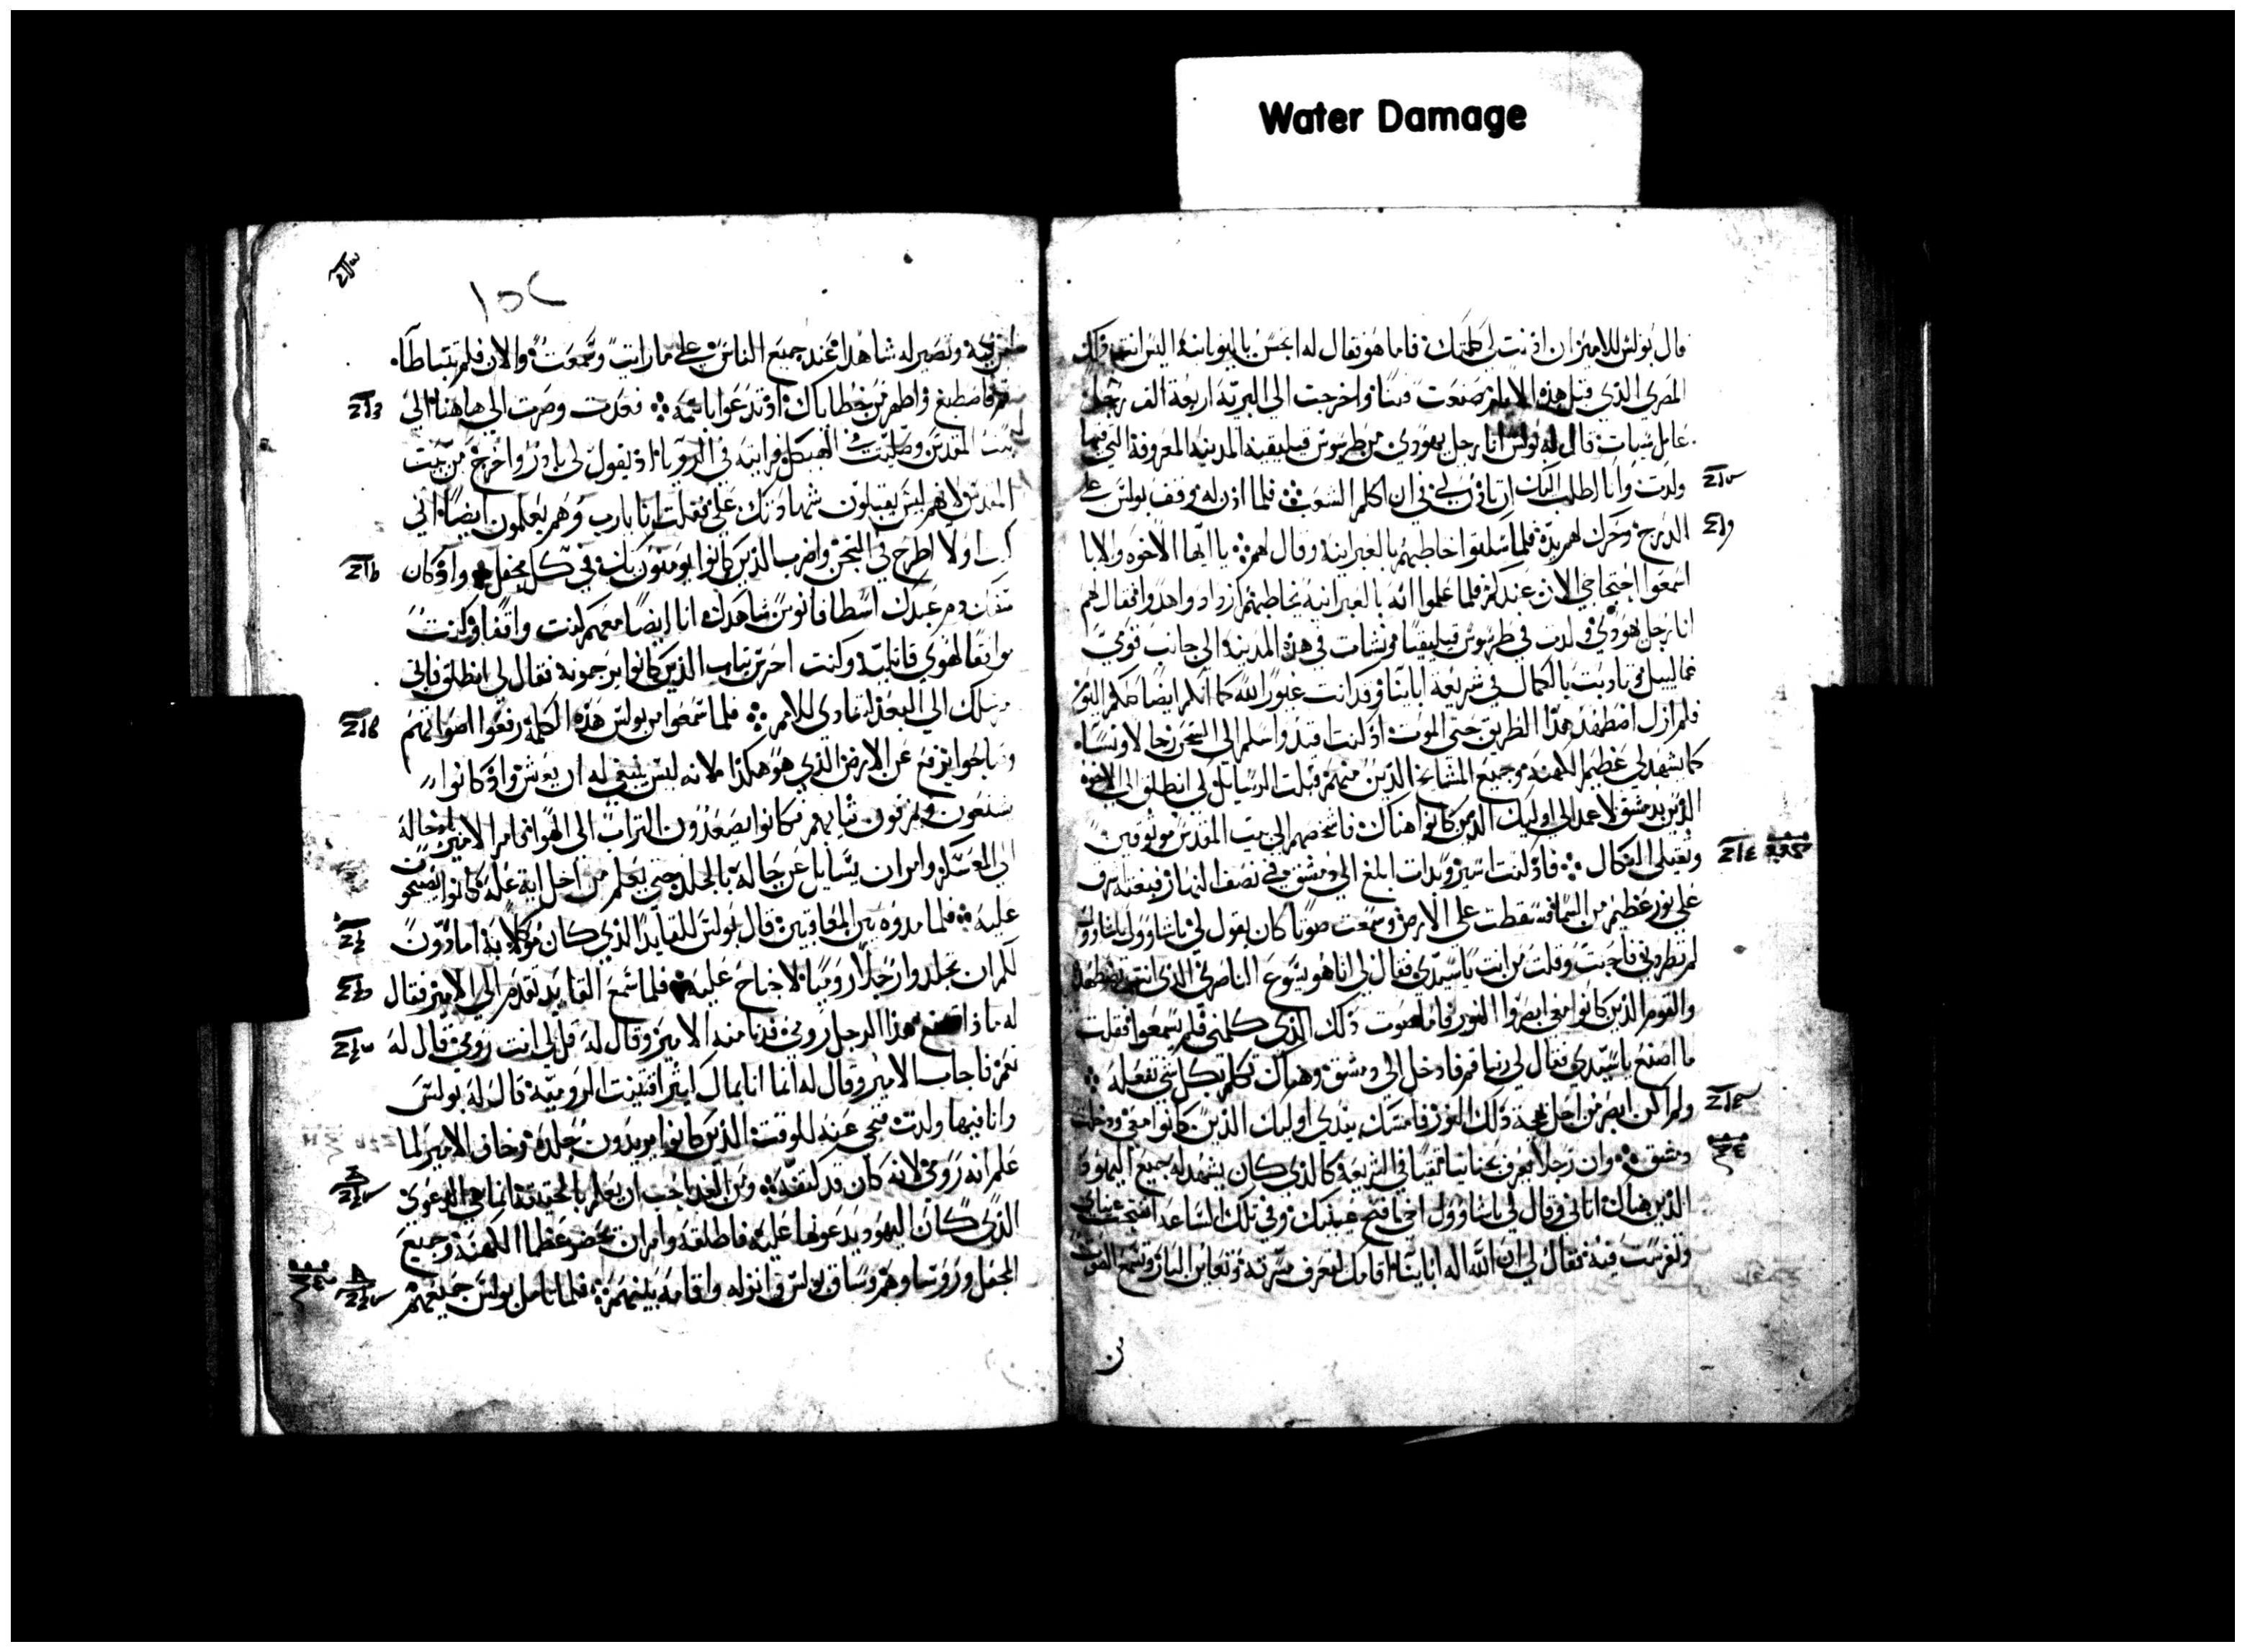 Water Damage
قال بولس للامير ان اذنت لي كلمتك فاما هو فقال له اتحسن باليونانية اليس انت هو ذلك
المصري الذي قبل هذه الايام صنعت واخرجت الى البرية اربعة الف رجل
عامل سيات قال له بولس انا رجل يهودي من طرسوس قيليقية المدينة المعروفة التي فيها
ولدت وانا اطلب اليك ان تاذن لي في ان اكلم الشعب فلما اذن له وقف بولس على
الدرج وحرك لهم يده فلما سكتوا خاطبهم بالعبرانية وقال لهم يا ايها الاخوة والابا
اسمعوا احتجاجي الان عندكم فلما علموا انه بالعبرانية يخاطبهم ازدادوا هدوا فقال لهم
انا رجل يهودي ولدت في طرسوس قيليقيا ونشات في هذه المدينة الى جانب قدمي
غماليل وتادبت بالكمال في شريعة ابائنا وقد كنت غيور الله كما انكم ايضا كلكم اليوم
فلم ازل اضطهد هذا الطريق حتى الموت اذ كنت اقيد واسلم الى السجن رجالا ونسا
كما يشهد لي عظيم الكهنة وجميع المشايخ الذين منهم قبلت الرسايل لي انطلق الى الاخوة
الذين بدمشق لاعمد الى اوليك الذين كانوا هناك فاشخصهم الى بيت المقدس موثوقين
النكال فاذ كنت اسير وبدات ابلغ الى دمشق في نصف النهار فبغتة برق
علي نور عظيم من السما فسقطت على الارض وسمعت صوتا كان يقول لي يا شاوول يا شاوول
لم تطردني فاجبت وقلت من انت يا سيدي فقال لي انا هو يسوع الناصري الذي انت تضطهد
والقوم الذين كانوا معي ابصروا النور فاما صوت ذلك الذي كلمني فلم يسمعوا فقلت
ما اصنع يا سيدي فقال لي ربنا قم فادخل الى دمشق وهناك تكلم بكل شي تفعله
ولم اكن ابصر من اجل بهجة ذلك النور فامسك بيدي اوليك الذين كانوا معي ودخلت
دمشق وان رجلا يعرف بحنانيا تقيا في الشريعة كالذي كان يشهد له جميع اليهود
الذين هناك اتاني وقال لي يا شاوول اخي افتح عينيك وفي تلك الساعة انفتحت عيناي
وتفرست فيه فقال لي ان الله اله ابائنا اقامك لتعرف مسرته وتعاين البار وتسمع الصوت
١٥٢
من فيه وتصير له شاهدا عند جميع الناس على ما رايت وسمعت والان فلم تتباطا
قم فاصطبغ واطهر من خطاياك اذ تدعوا باسمه فعدت وصرت الى هاهنا الى
بيت المقدس وصليت في الهيكل فرايته في الرويا اذ يقول لي بادر واخرج من بيت
المقدس لانهم ليس يقبلون شهادتك علي فقلت انا يا رب وهم يعلمون ايضا اني
اولا اطرح في السجن واضرب الذين كانوا يومنون بك في كل محفل واذ كان
دم عبدك اسطافانوس شاهدك انا ايضا معهم كنت واقفا وكنت
موافقا لهوى قاتليه وكنت احرس ثياب الذين كانوا يرجمونه فقال لي انطلق فاني
مرسلك الى البعد لتنادي للامم فلما سمعوا من بولس هذه الكلمة رفعوا اصواتهم
وصاحوا يرفع عن الارض الذي هو هكذا لانه ليس ينبغي له ان يعيش واذ كانوا
ثيابهم وكانوا يصعدون التراب الى الهوا فامر الامير بادخاله
الى المعسكر وامر ان يسايل عن حاله بالجلد حتى يعلم من اجل اية علة كانوا يصيحون
عليه فلما مدوه بين المعاقبين قال بولس للقايد الذي كان موكلا به اماذون
لكم ان تجلدوا رجلا روميا لا جناح عليه فلما سمع القايد تقدم الى الامير فقال
له ماذا تصنع هذا الرجل رومي فدنا منه الامير وقال له قل لي انت رومي قال له
نعم فاجاب الامير وقال له اما انا بمال كثير اقتنيت الرومية قال له بولس
وانا فيها ولدت فتنحى عنه للوقت الذين كانوا يريدون جلده وخاف الامير لما
علم انه رومي لانه كان قد كتفه ومن الغد احب ان يعلم بالحقيقة ما هي الدعوى
الذي كان اليهود يدعونها عليه فاطلقه وامر ان يحضر عظما الكهنة وجميع
المحفل وروسا وهم وساق بولس وانزله واقامه بينهم فلما تامل بولس جميعهم